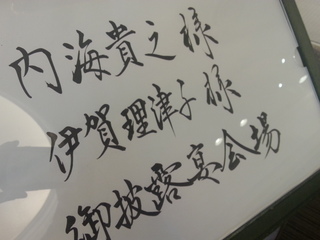 内海貴之様
伊賀理津子様
御披露宴会場